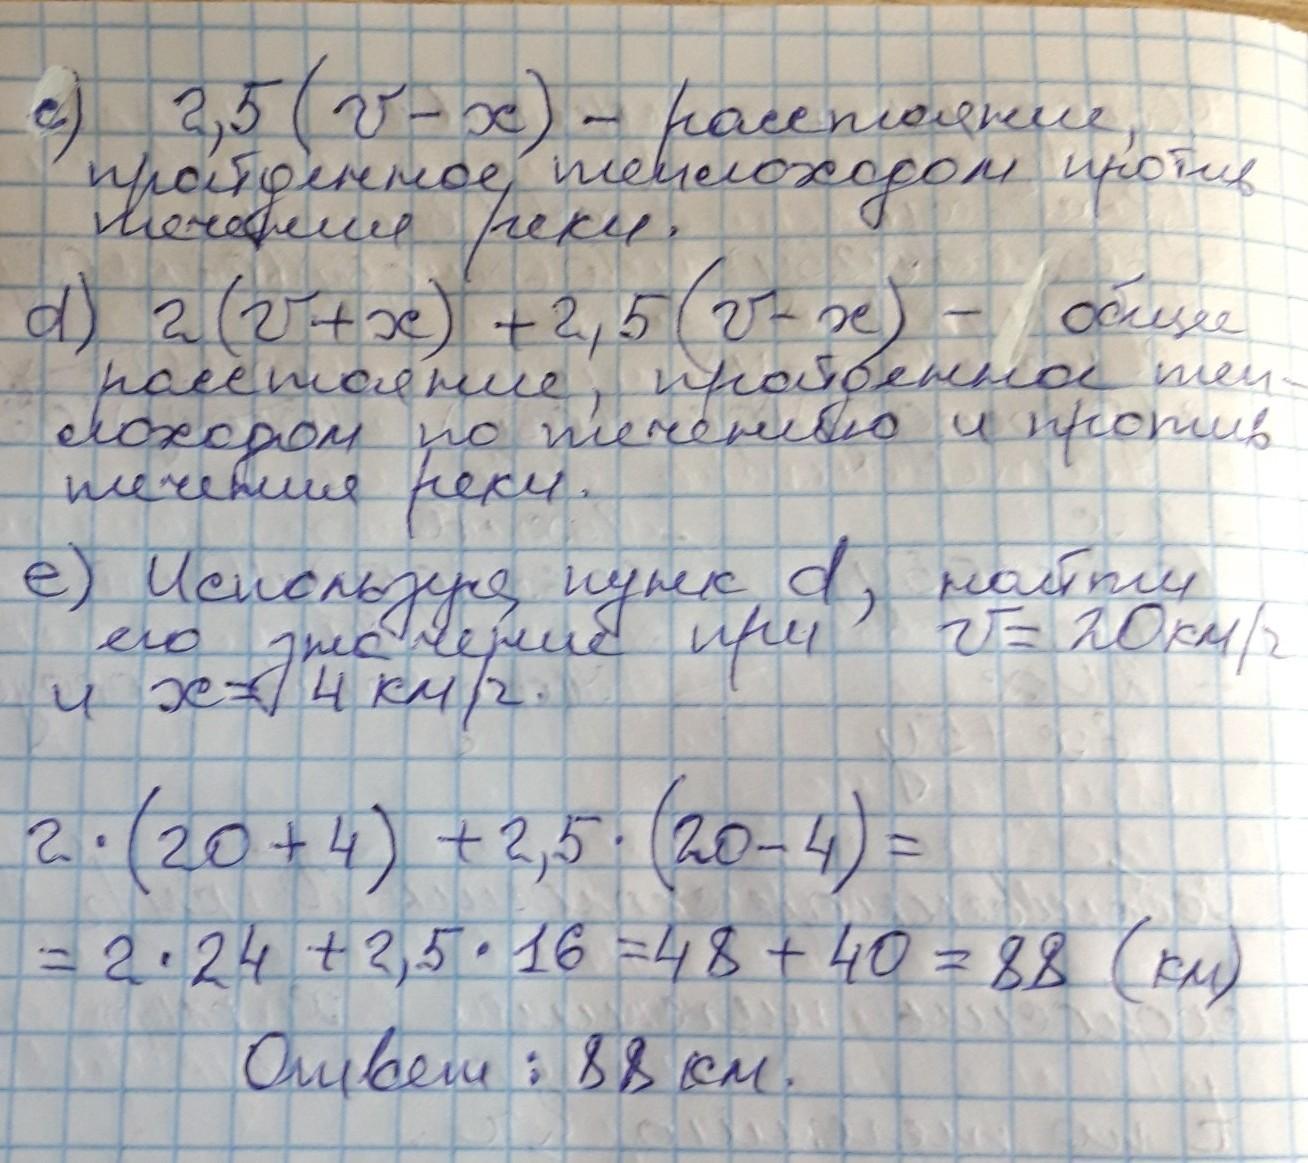 c) 2,5(v-x) - расстояние,
пройденное теплоходом против
течения реки.
d) 2(v+x) +2,5(v-x) - общее
расстояние, пройденное теп-
лоходом по течению и против
течения реки.
e) Используя пункт d, найти
его значение при v=20км/г
и x= 4 км/г.
2·(20+4) +2,5·(20-4)=
=2·24 +2,5·16 =48+40=88 (км)
Ответ: 88 км.